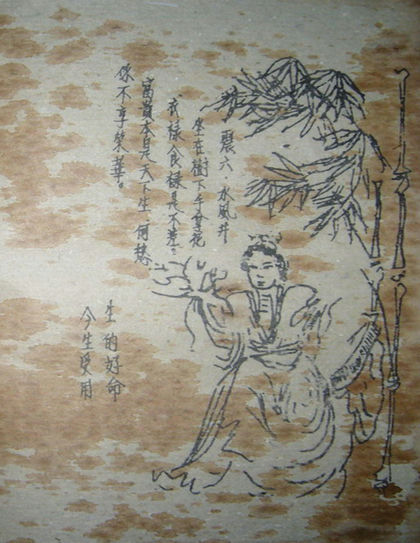 震六.水風井
坐在樹下手拿花
衣祿食祿是不差。
富貴本是天下生 何愁
你不享榮華。
生的好命
今生受用